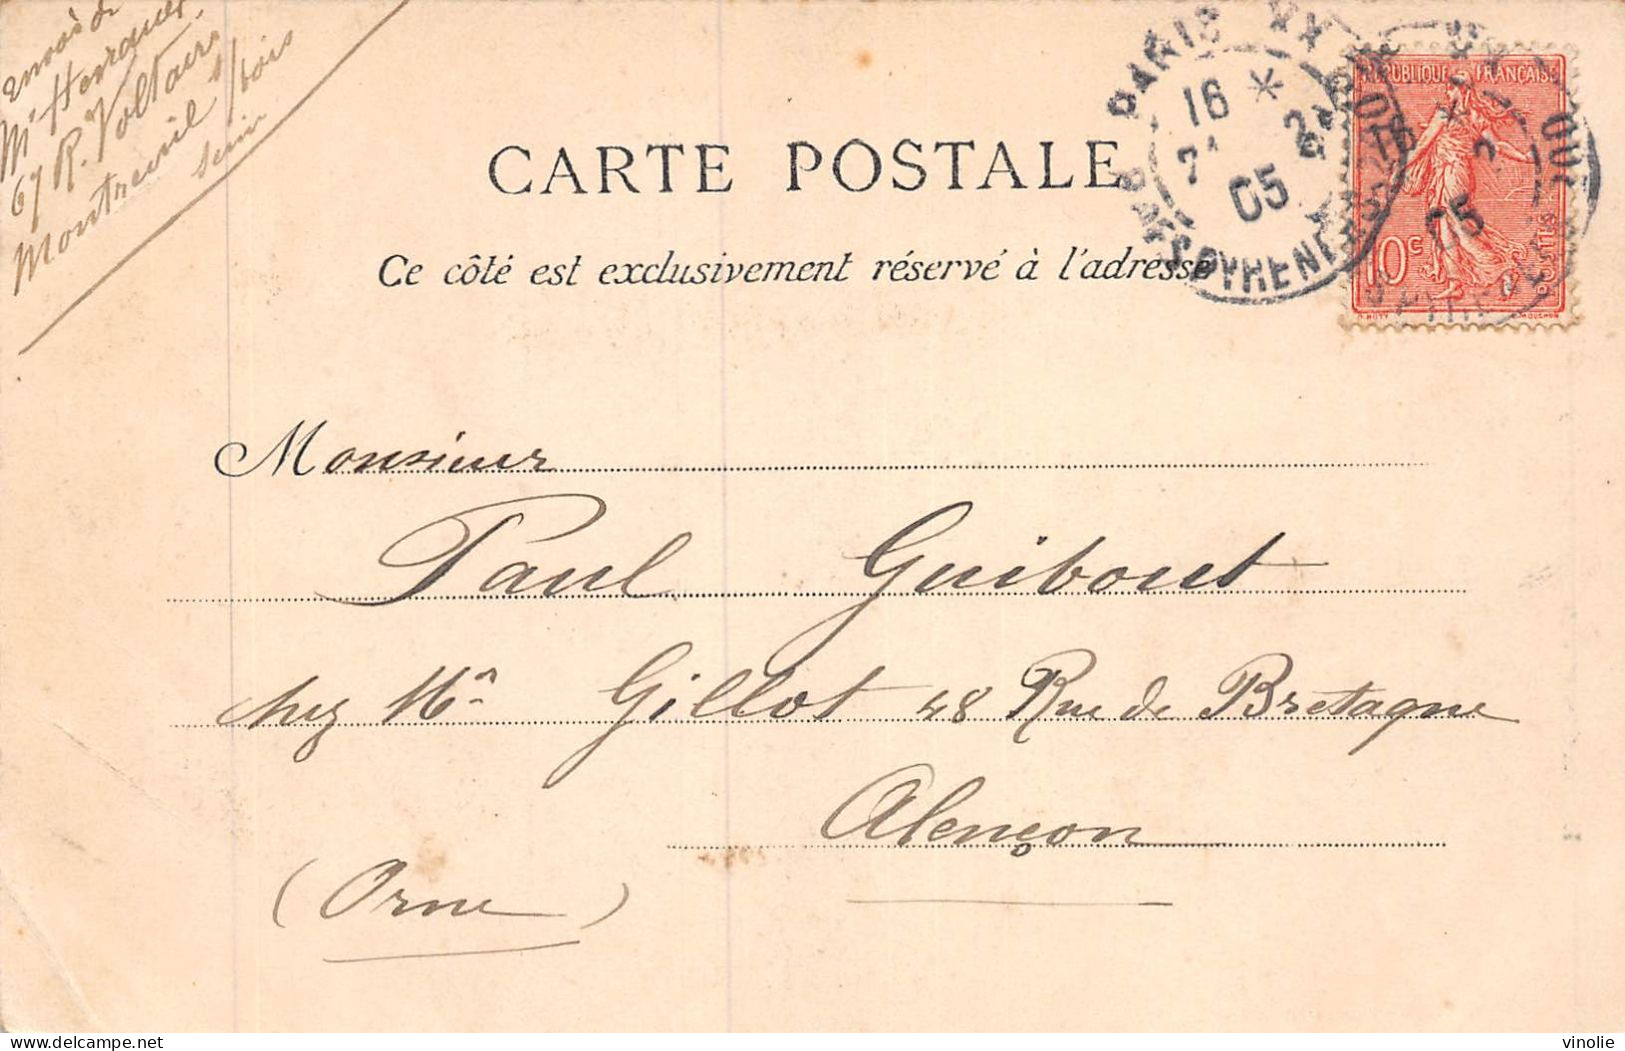 envoi de
Mr
67 R. Voltaire
Montreuil s/bois
Seine
CARTE POSTALE
Ce côté est exclusivement réservé à l'adresse
PARIS XX
16 *
05
PYRENEES
REPUBLIQUE FRANÇAISE
10c
POSTES
O. ROTY
MOUCHON
Monsieur
Paul Guibout
chez Mr Gillot 48 Rue de Bretagne
Alençon
(Orne)
vinolie